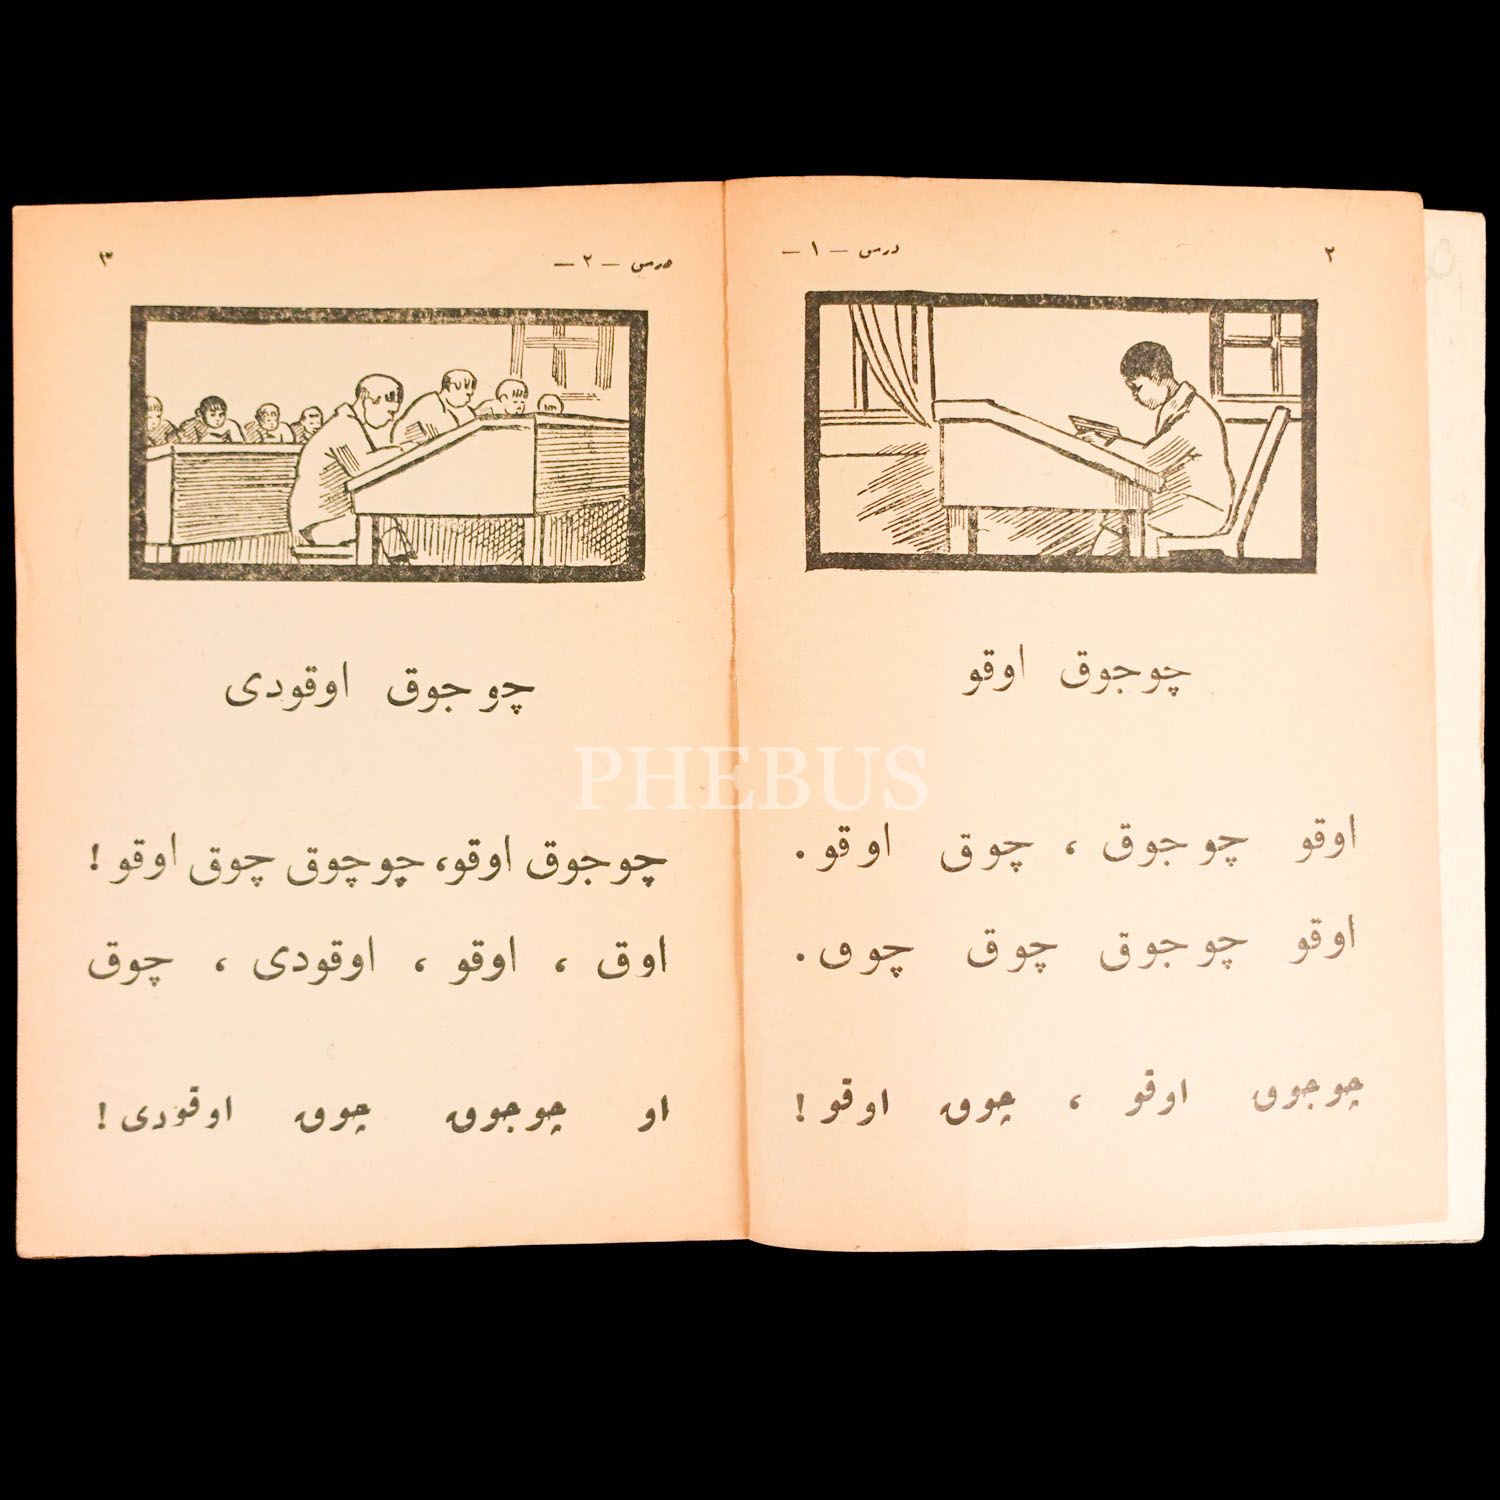 ٢
درس — ١ —
چوجوق اوقو
اوقو چوجوق ، چوق اوقو.
اوقو چوجوق چوق چوق.
چوجوق اوقو ، چوق اوقو !
درس — ٢ —
٣
چوجوق اوقودی
چوجوق اوقو، چوچوق چوق اوقو !
اوق ، اوقو ، اوقودی ، چوق
او چوجوق چوق اوقودی !
PHEBUS